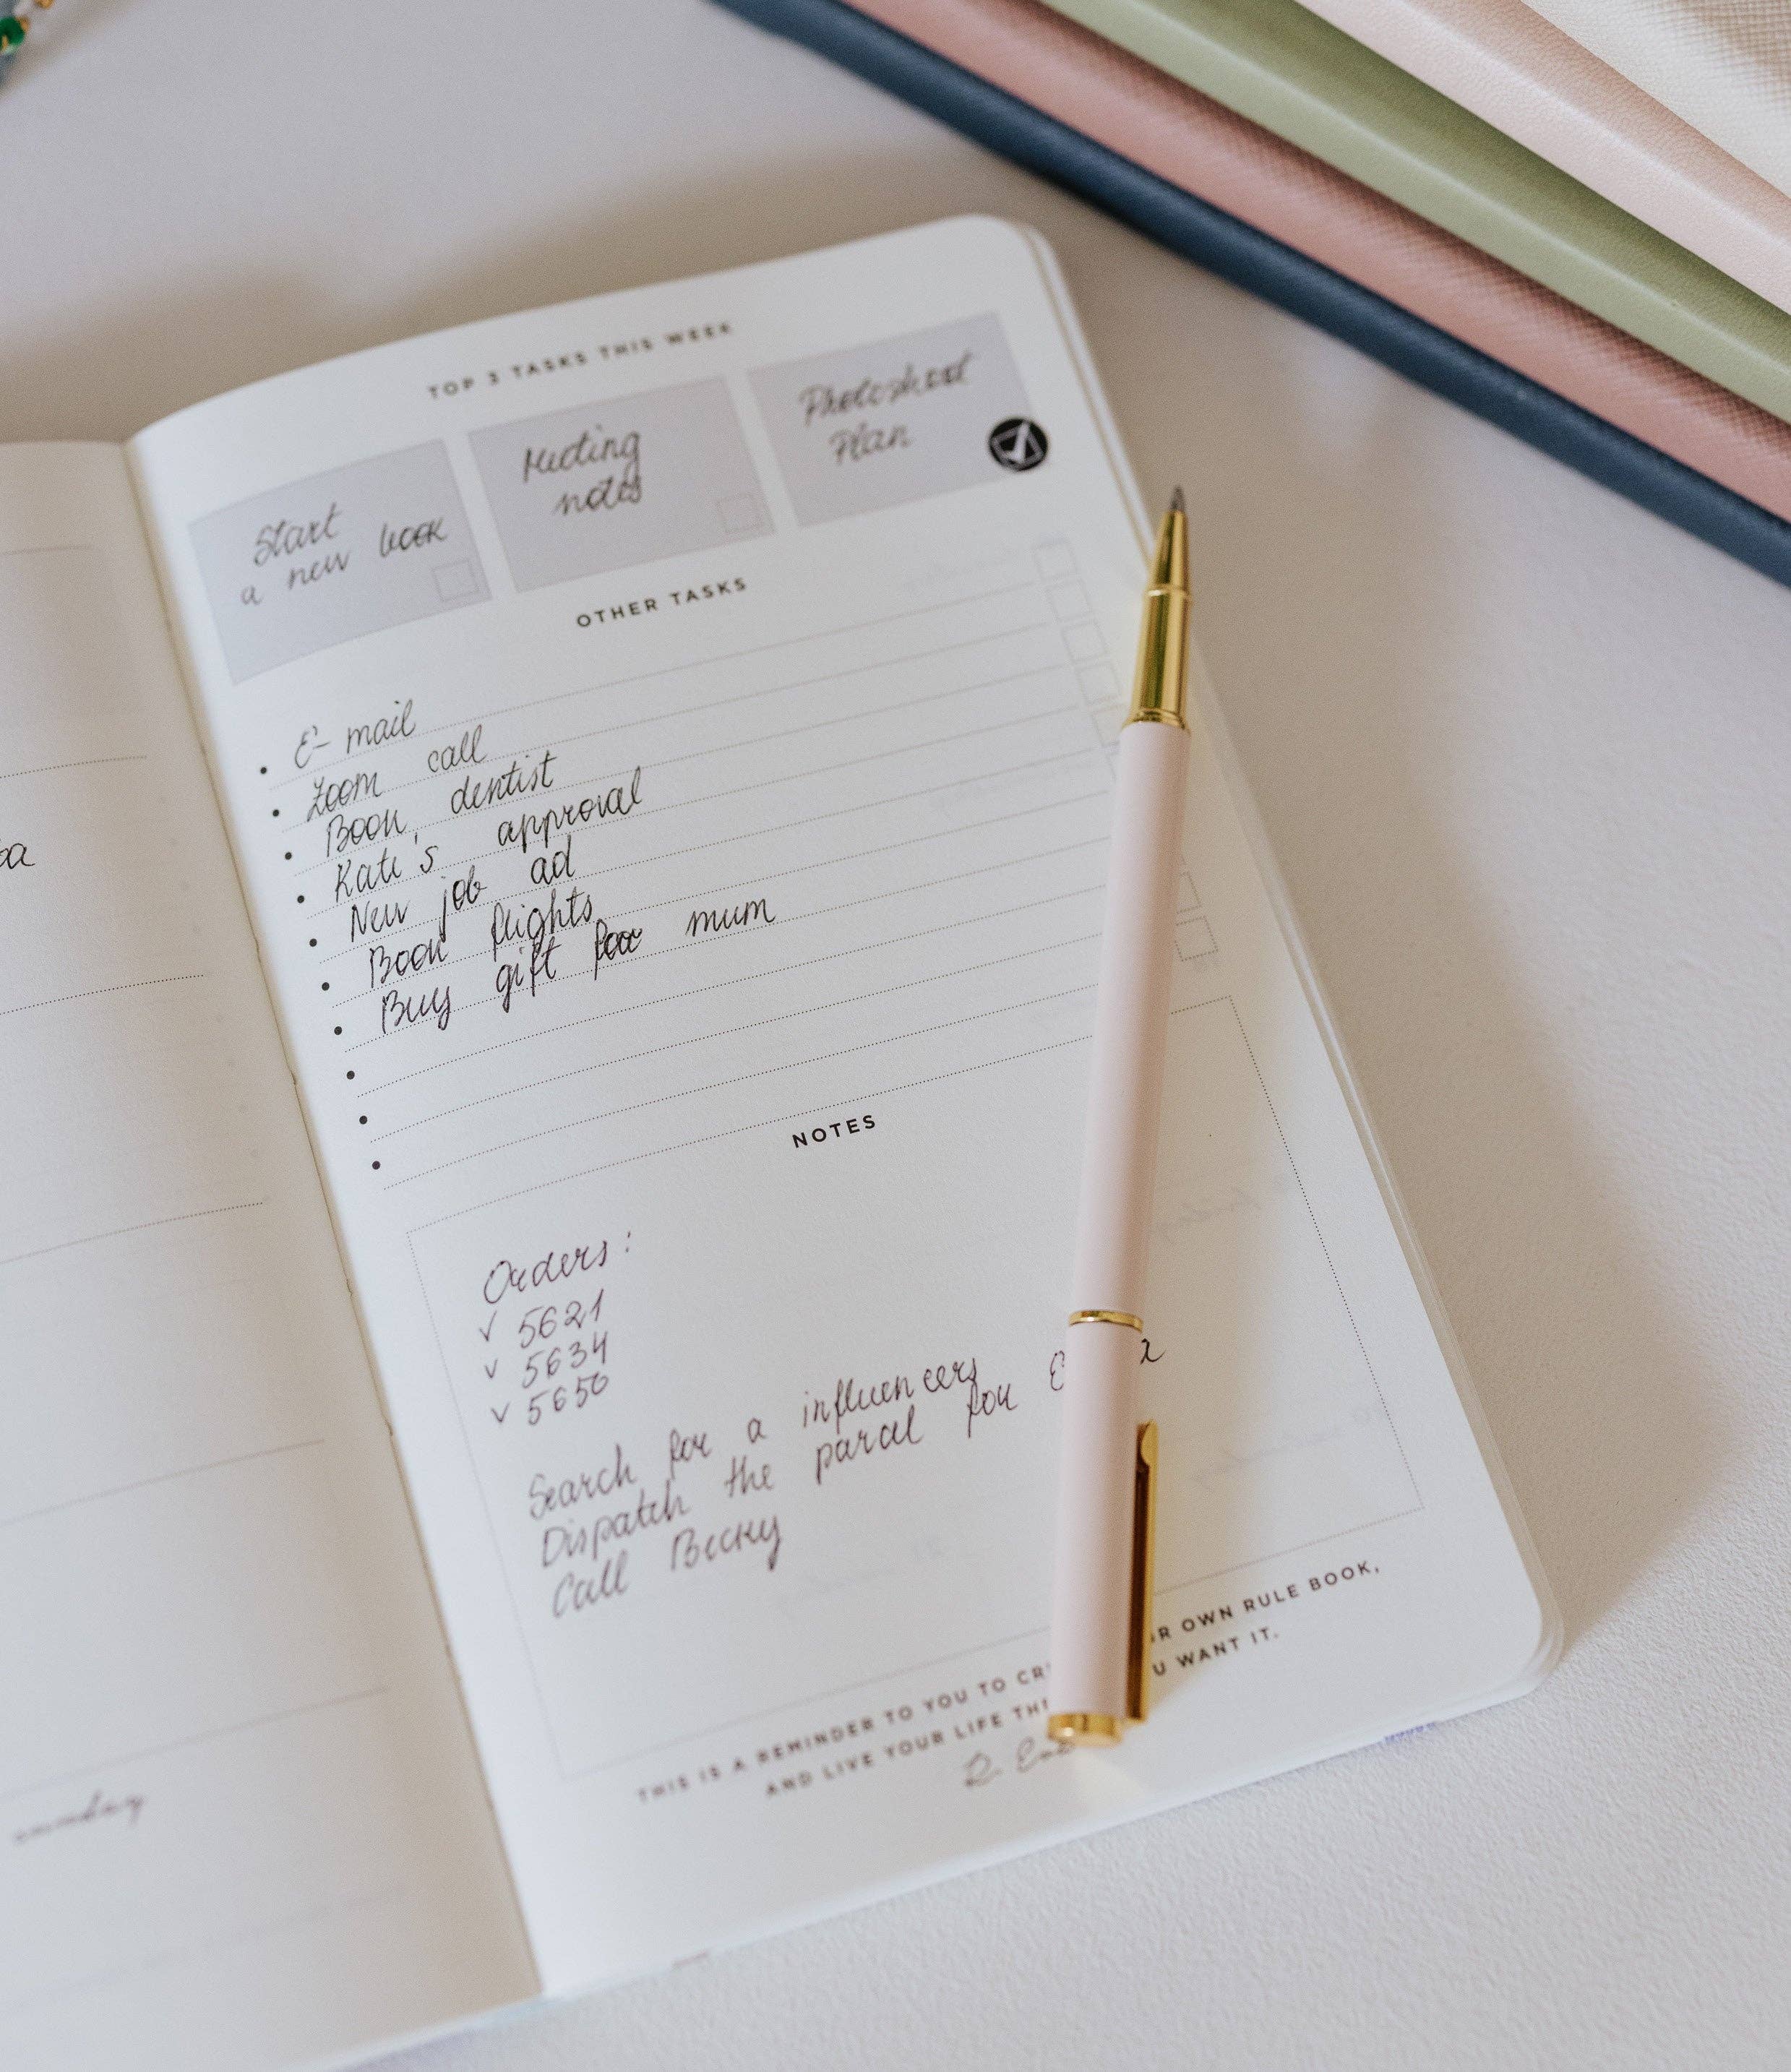 TOP 3 TASKS THIS WEEK
Start
a new book
Meeting
notes
Photoshoot
Plan
OTHER TASKS
E-mail
Zoom call
Book dentist
Kate's approval
New job ad
Book flights
Buy gift for mum
NOTES
Orders:
✓ 5621
✓ 5634
✓ 5650
Search for a influencers
Dispatch the parcel for
Call Becky
THIS IS A REMINDER TO YOU TO OWN RULE BOOK,
AND LIVE YOUR LIFE WANT IT.
sunday